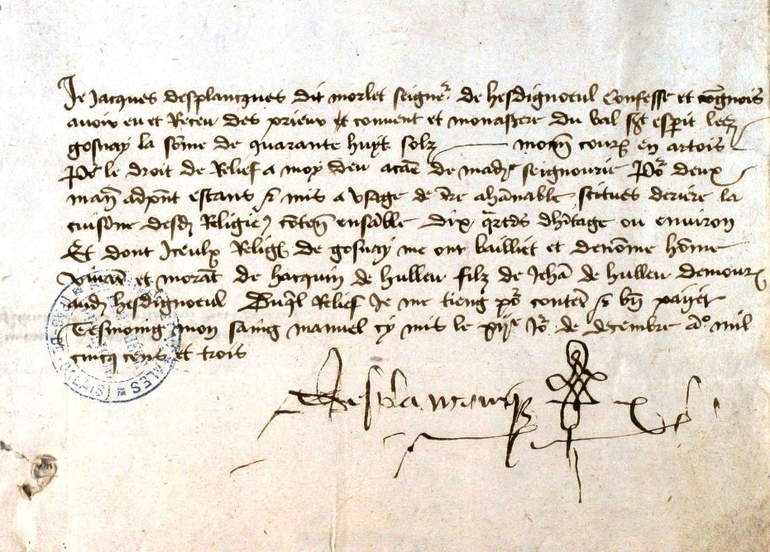 Je Jacques desplancques dit morlet seigne^r de hesdigneul Confesse et cognois
avoir eu et Receu des prieur et convent et monastere du val s^t esperit lez
gosnay la some de quarante huyt solz monn cour en artois
Po^r le droit de Relief a moy deu a cae de mad seignourie Po^r deux
man adpnt estans et mis a usage de tre ahanable scitues deriere la
cuisine desd Religie conten ensable dix qrtrs dhitage ou environ
Et dont Iceulx Relig de gosnay me ont bailliet et denome home
vivan et morat de hacquin de hulleu filz de Jeha de hulleu demour
aud hesdigneul Duql Relief Je me tieng po^r conten et bn payet
Tesmoing mon saing manuel cy mis le xij^e Jo^r de decembre a^o mil
cincq cens et trois
Desplancques